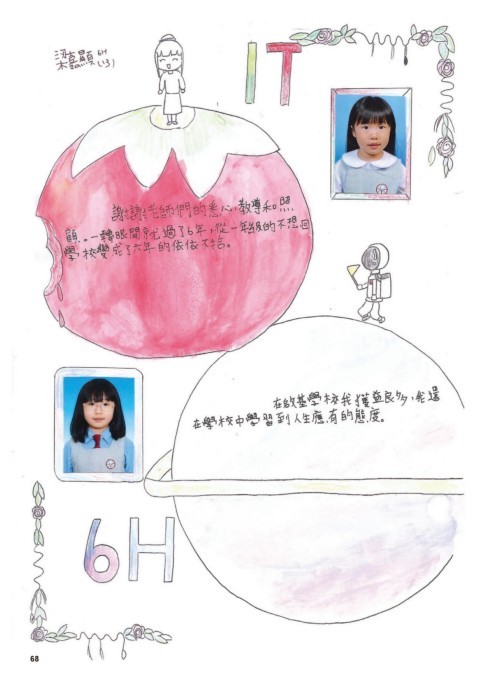 梁嘉顯 6H
(13)
1T
謝謝老師們的悉心教導和照
顧。一轉眼間就過了6年，從一年級的不想回
學校變成了六年的依依不捨。
在啟基學校我獲益良多，我還
在學校中學習到人生應有的態度。
6H
68